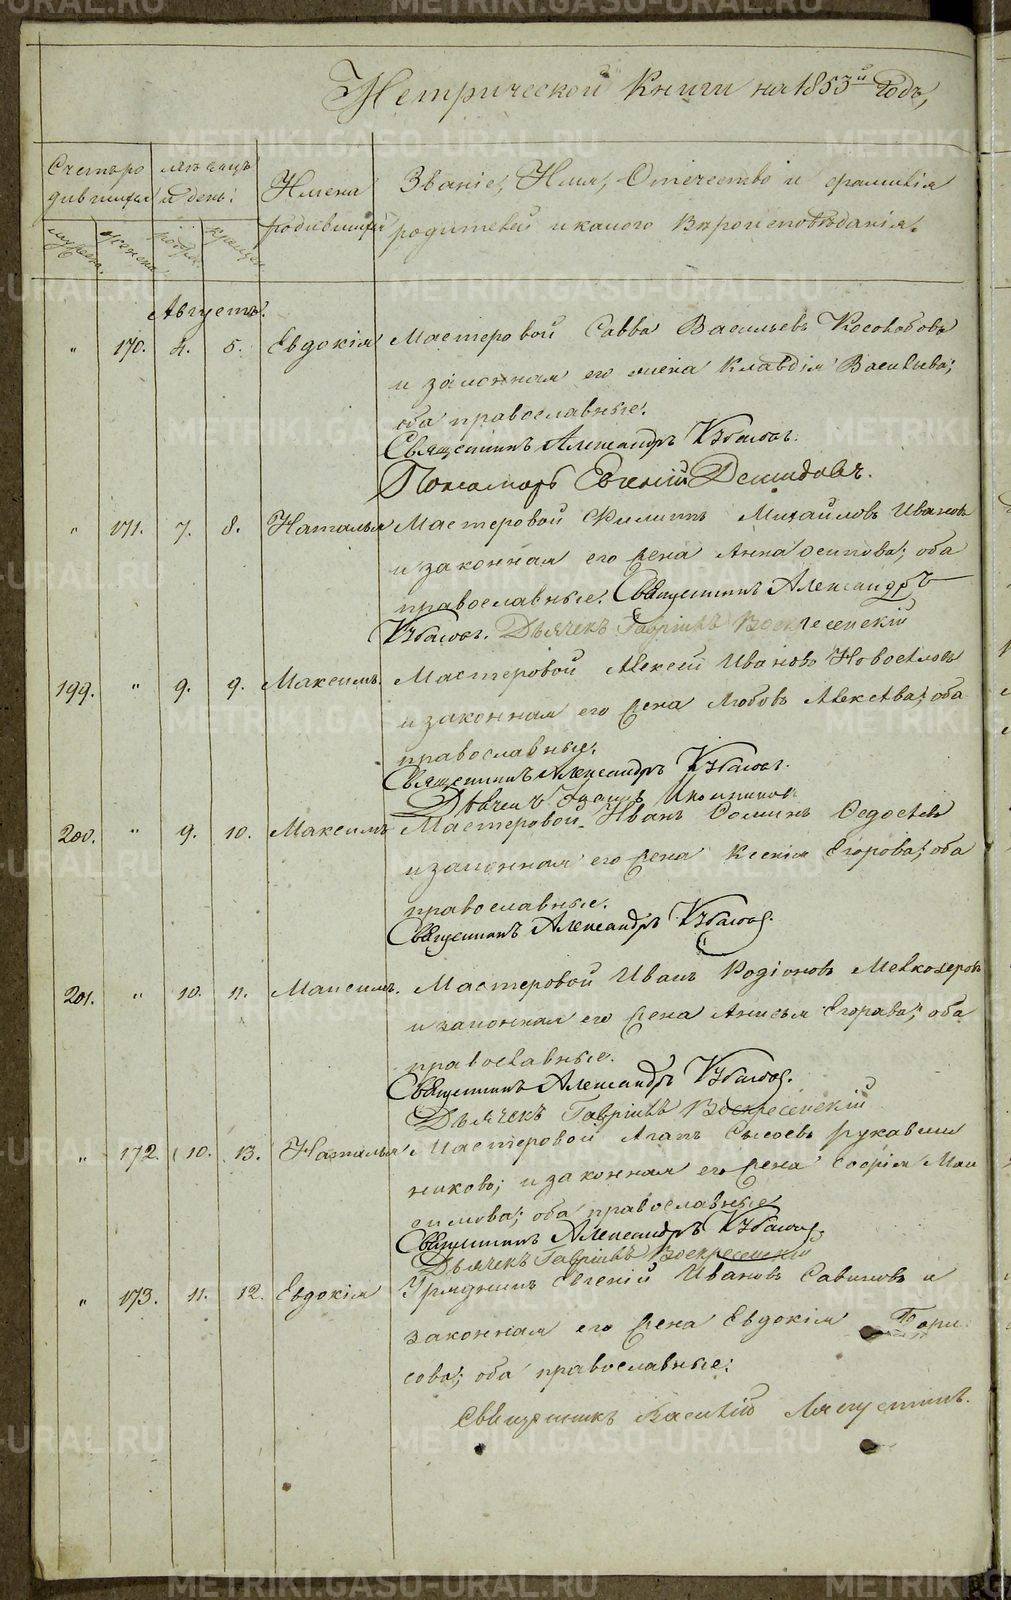 Метрической Книги на 1853й Годъ,
Счетъ ро месяцъ
дившихся и день:
Имена
родившихся
Званіе, Имя, Отечество и фамилія
родителей и какого Вѣроисповѣданія.
мужеска. женска. рожден. крещен.
Августъ.
" 170. 4. 5. Евдокія Мастеровой Савва Васильевъ Косолобовъ
и законная его жена Клавдія Васильева;
оба православные.
Священникъ Александръ
Пономарь Евгеній Демидовъ.
" 171. 7. 8. Наталья Мастеровой Филиппъ Михайловъ Ивановъ
и законная его жена Анна Осипова; оба
православные. Священникъ Александръ
Дьячекъ Гавріилъ Воскресенскій
199. " 9. 9. Максимъ. Мастеровой Алексей Ивановъ Новоселовъ
и законная его жена Любовь Алексѣева; оба
православные.
Священникъ Александръ
Дьячекъ
200. " 9. 10. Максимъ Мастеровой Иванъ Ѳоминъ Ѳедосеевъ
и законная его жена Ксенія Егорова; оба
православные.
Священникъ Александръ
201. " 10. 11. Максимъ. Мастеровой Иванъ Родіоновъ Мелкозеровъ
и законная его жена Анисья Егорова; оба
православные.
Священникъ Александръ
Дьячекъ Гавріилъ Воскресенскій
" 172. 10. 13. Наталья Мастеровой Агапъ Сысоевъ Рукавиш
никовъ; и законная его жена Софія Мак
симова; оба православные
Священникъ Александръ
Дьячекъ Гавріилъ Воскресенскій
" 173. 11. 12. Евдокія Урядникъ Евгеній Ивановъ Савиновъ и
законная его жена Евдокія Бори
сова; оба православные:
Священникъ Василій
METRIKI.GASO-URAL.RU